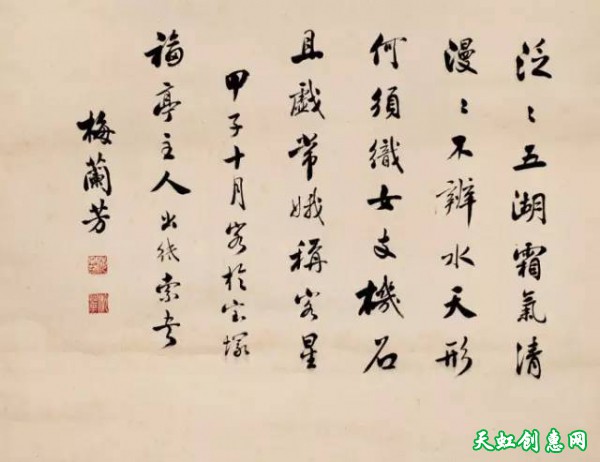 泛〻五湖霜氣清
漫〻不辨水天形
何須織女支機石
且戯常娥稱客星
甲子十月客於宝塚
福亭主人出紙索書
梅蘭芳
天虹创惠网